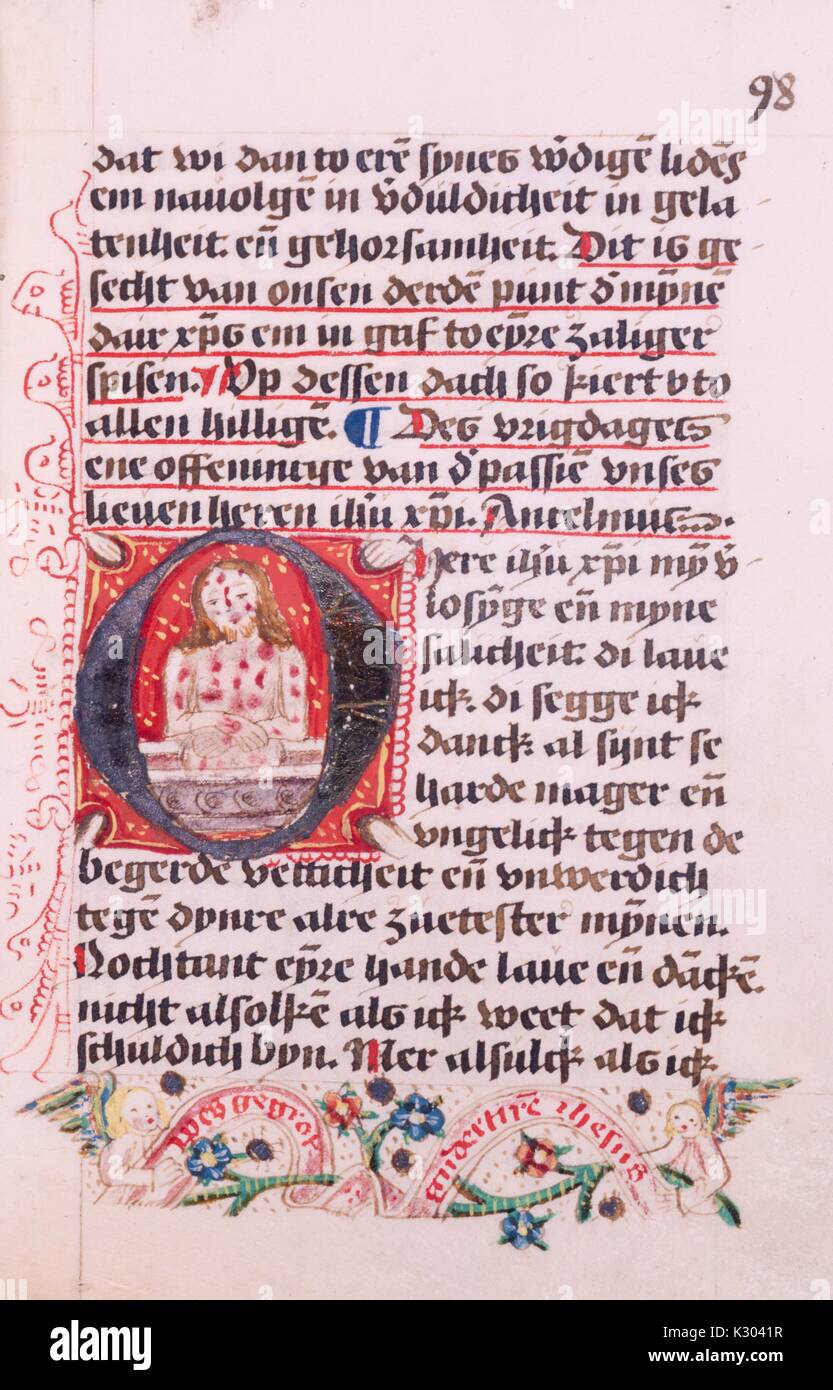 98
dat wi dan to erē synes w̄digē lidēs
em nauolgē in v̄duldicheit in gela
tenheit. en̄ gehorsamheit. Dit is ge
secht van onsen derdē punt d' mȳnē
dair xp̄s em in gaf to eyre zaliger
spisen. Vp dessen dach so kiert v to
allen hilligē. ¶ Des vrigdages
ene offeninge van d' passiē vnses
lieuen heren ih̄u xp̄i. Ancelmus
O Here ih̄u xp̄i my v̄
losȳge en̄ myne
salicheit. di laue
ick. di segge ick
danck. al synt se
harde mager en̄
vngelick tegen de
begerde vetticheit en̄ vnwerdich
tegē dynre alre zuetester mȳnen.
Nochtant eyre hande laue en̄ dāckē
nicht alsolkē als ick weet dat ick
schuldich byn. Mer alsulck als ick
wes gegrot
ihesus
alamy stock photo
K3041R
www.alamy.com